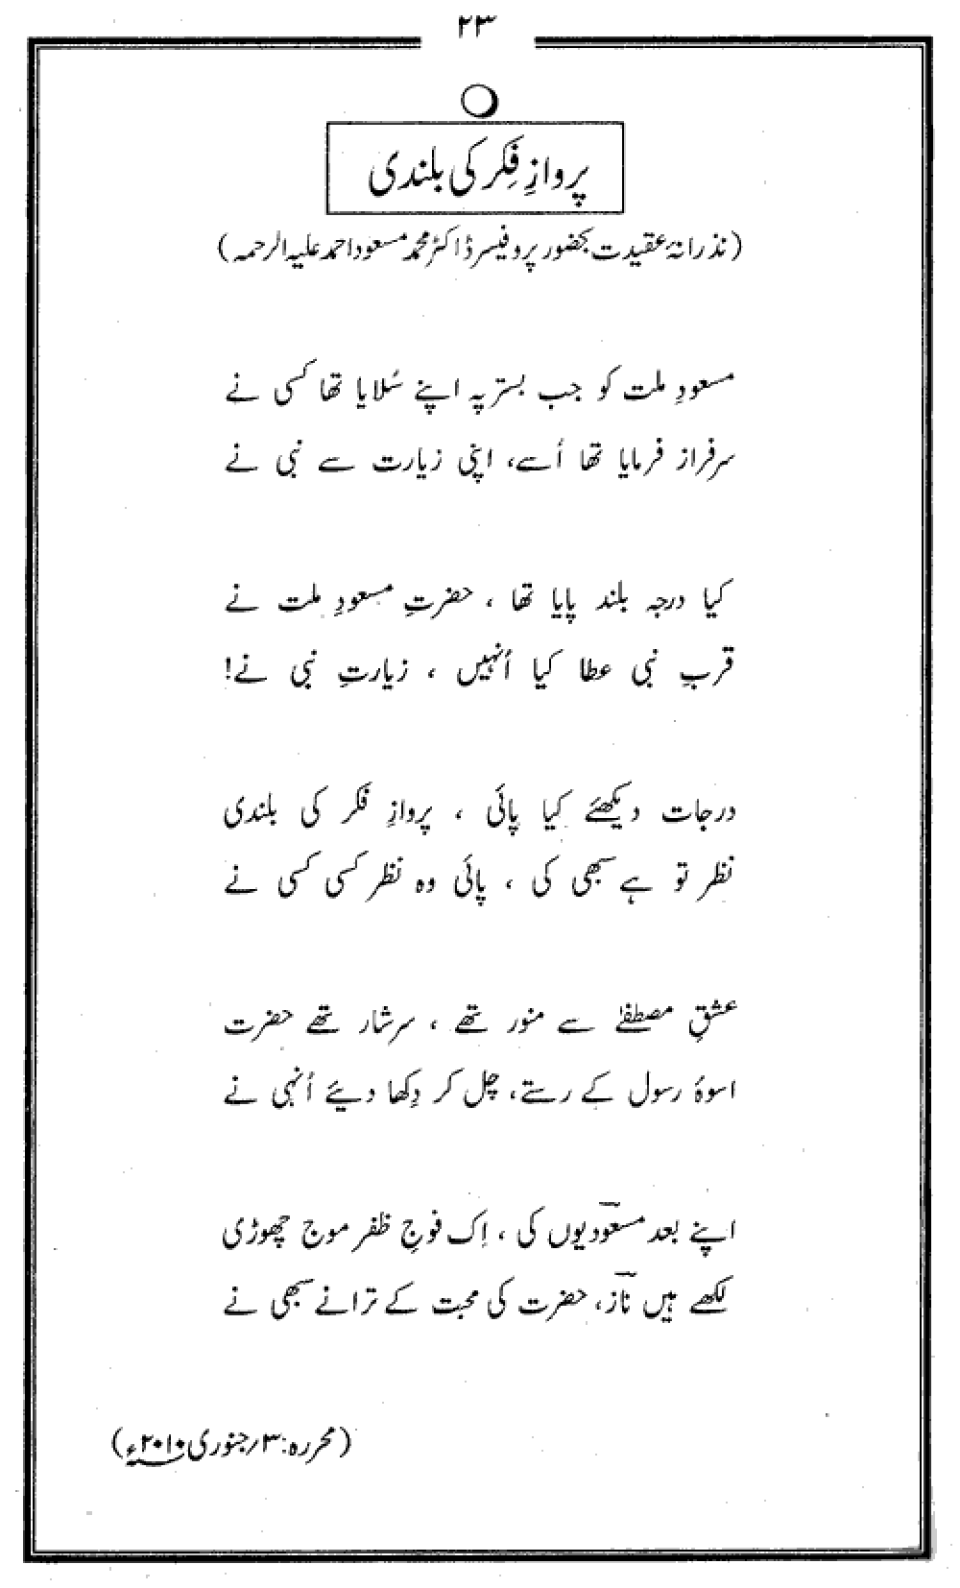 ۲۳
پروازِ فِکر کی بلندی
(نذرانۂ عقیدت بحضور پروفیسر ڈاکٹر محمد مسعود احمد علیہ الرحمہ)
مسعودِ ملت کو جب بستر پہ اپنے سُلایا تھا کسی نے
سرفراز فرمایا تھا اُسے، اپنی زیارت سے نبی نے
کیا درجہ بلند پایا تھا ، حضرتِ مسعودِ ملت نے
قربِ نبی عطا کیا اُنہیں ، زیارتِ نبی نے!
درجات دیکھئے کیا پائی ، پروازِ فکر کی بلندی
نظر تو ہے سبھی کی ، پائی وہ نظر کسی کسی نے
عشقِ مصطفےٰ سے منور تھے ، سرشار تھے حضرت
اسوۂ رسول کے رستے، چل کر دِکھا دیئے اُنہی نے
اپنے بعد مسعودیوں کی ، اِک فوجِ ظفر موج چھوڑی
لکھے ہیں نازؔ، حضرت کی محبت کے ترانے سبھی نے
(محررہ: ۳/جنوری ۲۰۱۰ء)